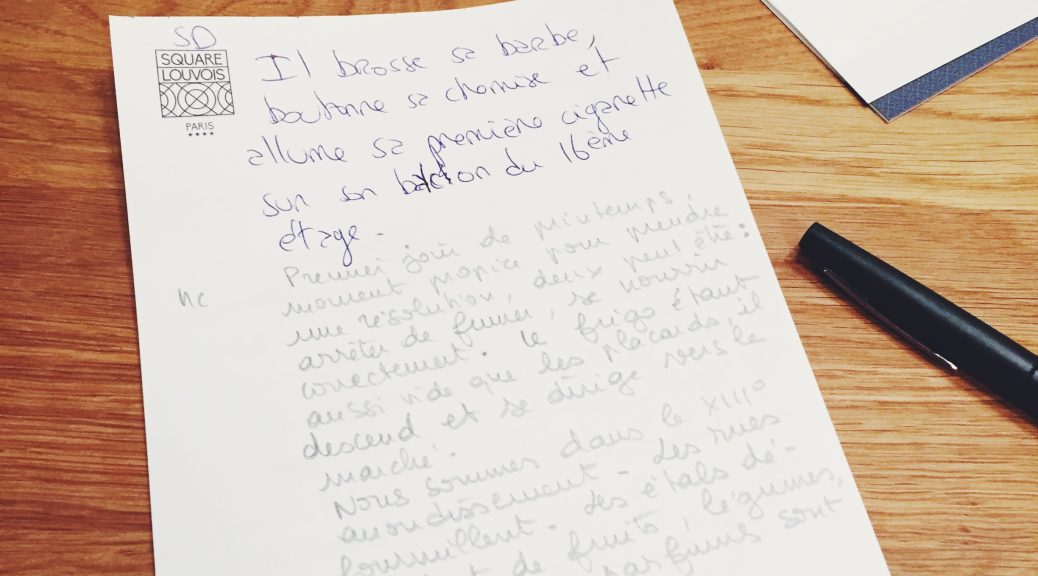 SD
SQUARE
LOUVOIS
PARIS
★★★★
Il brosse sa barbe,
boutonne sa chemise et
allume sa première cigarette
sur son balcon du 16ème
étage.
nc
Premier jour de printemps,
moment propice pour prendre
une résolution, deux peut être :
arrêter de fumer, se nourrir
correctement. Le frigo étant
aussi vide que les placards, il
descend et se dirige vers le
marché.
Nous sommes dans le XIII°
arrondissement - Les rues
fourmillent - Des étals dé-
de fruits, légumes,
parfums sont